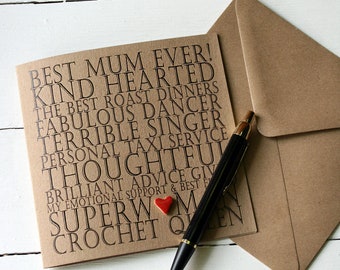 BEST MUM EVER!
KIND HEARTED
THE BEST ROAST DINNERS
FABULOUS DANCER
TERRIBLE SINGER
PERSONAL TAXI SERVICE
THOUGHTFUL
BRILLIANT ADVICE
MY EMOTIONAL SUPPORT & BEST
SUPERW MAN
CROCHET QUEEN